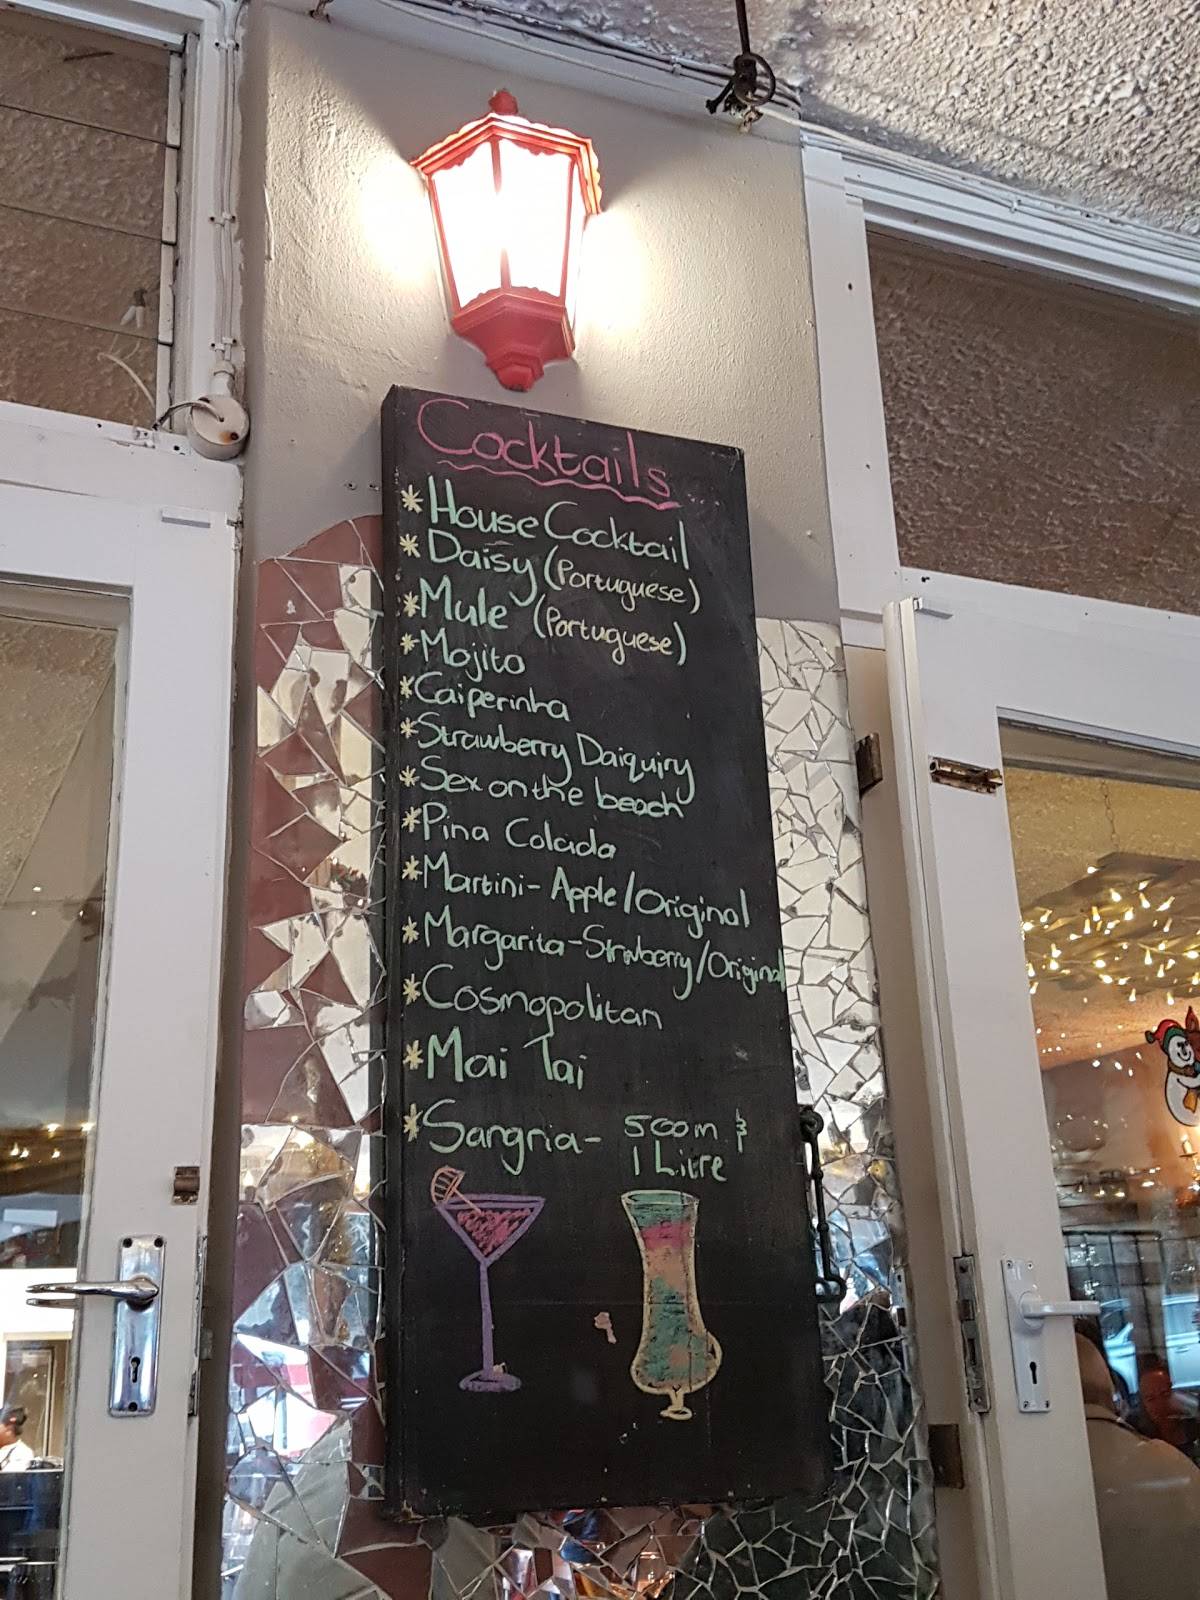 Cocktails
* House Cocktail
* Daisy (Portuguese)
* Mule (Portuguese)
* Mojito
* Caiperinha
* Strawberry Daiquiry
* Sex on the beach
* Pina Colada
* Martini - Apple/Original
* Margarita - Strwberry/Original
* Cosmopolitan
* Mai Tai
* Sangria - 500m &
1 Litre